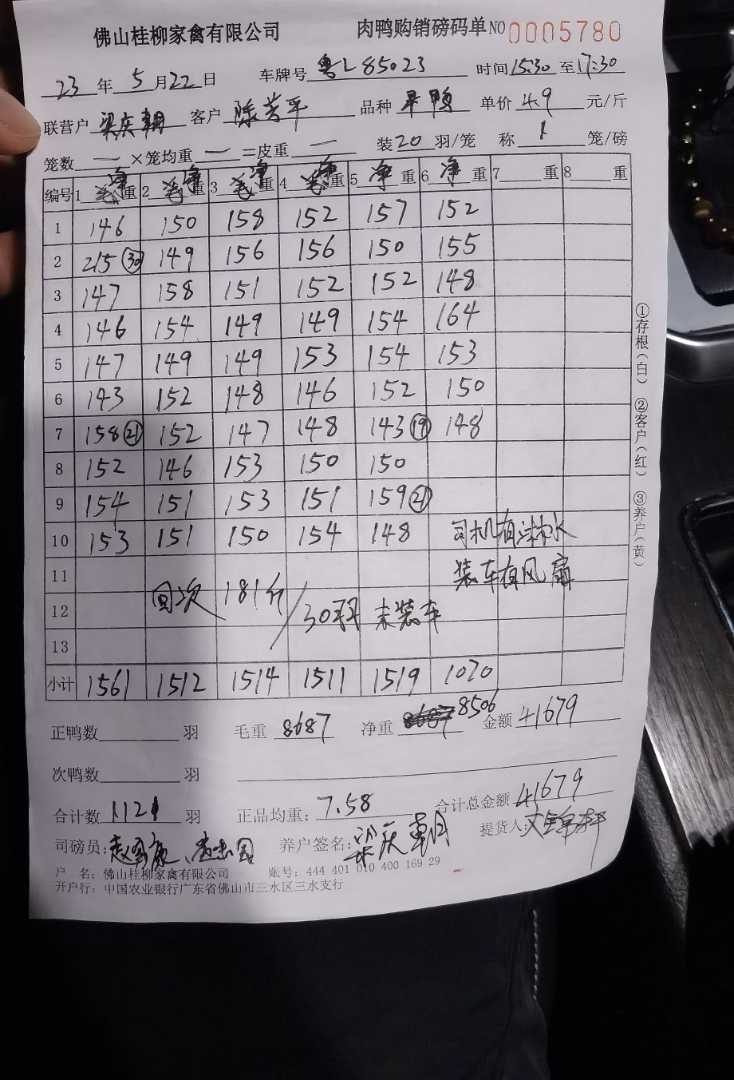 佛山桂柳家禽有限公司 肉鸭购销磅码单 NO 0005780
23 年 5 月 22 日 车牌号 粤L85023 时间 15:30 至 17:30
联营户 梁庆朝 客户 陈芳平 品种 单价 4.9 元/斤
笼数 — ×笼均重 — =皮重 — 装 20 羽/笼 称 1 笼/磅
编号 1 净重 2 净重 3 净重 4 净重 5 净重 6 净重 7 重 8 重
1 146 150 158 152 157 152
2 215 (30) 149 156 156 150 155
3 147 158 151 152 152 148
4 146 154 149 149 154 164
5 147 149 149 153 154 153
6 143 152 148 146 152 150
7 158 (21) 152 147 148 143 (19) 148
8 152 146 153 150 150
9 154 151 153 151 159 (21)
10 153 151 150 154 148 司机有淋水
11 装车有风扇
12 回次 181斤/30羽 未装车
13
小计 1561 1512 1514 1511 1519 1020
正鸭数 羽 毛重 8687 净重 8506 金额 41679
次鸭数 羽
合计数 1121 羽 正品均重: 7.58 合计总金额 41679
司磅员: 养户签名: 梁庆朝 提货人:
户 名: 佛山桂柳家禽有限公司 账号: 444 401 010 400 169 29
开户行: 中国农业银行广东省佛山市三水区三水支行
①存根(白) ②客户(红) ③养户(黄)